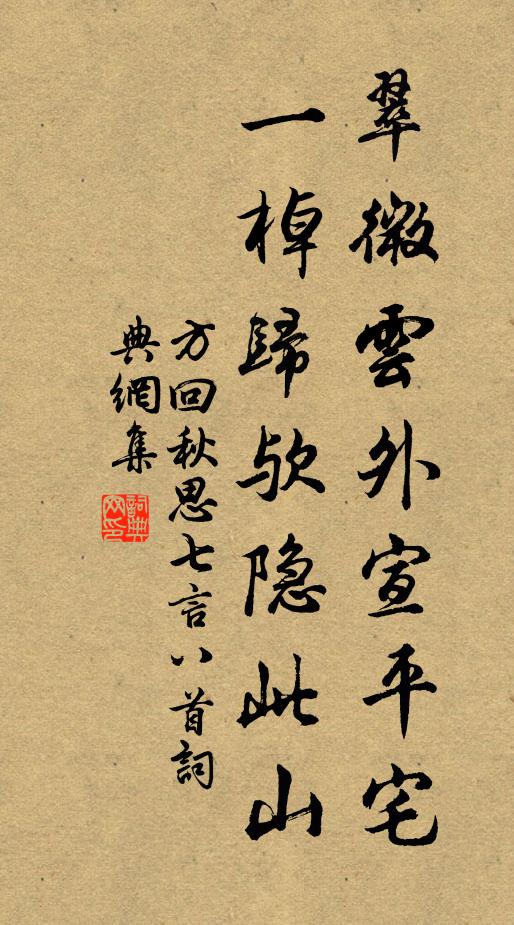 翠微雲外宣平宅
一棹歸歟隐此山
方回秋思七言八首詞
典網集
詞典
网印